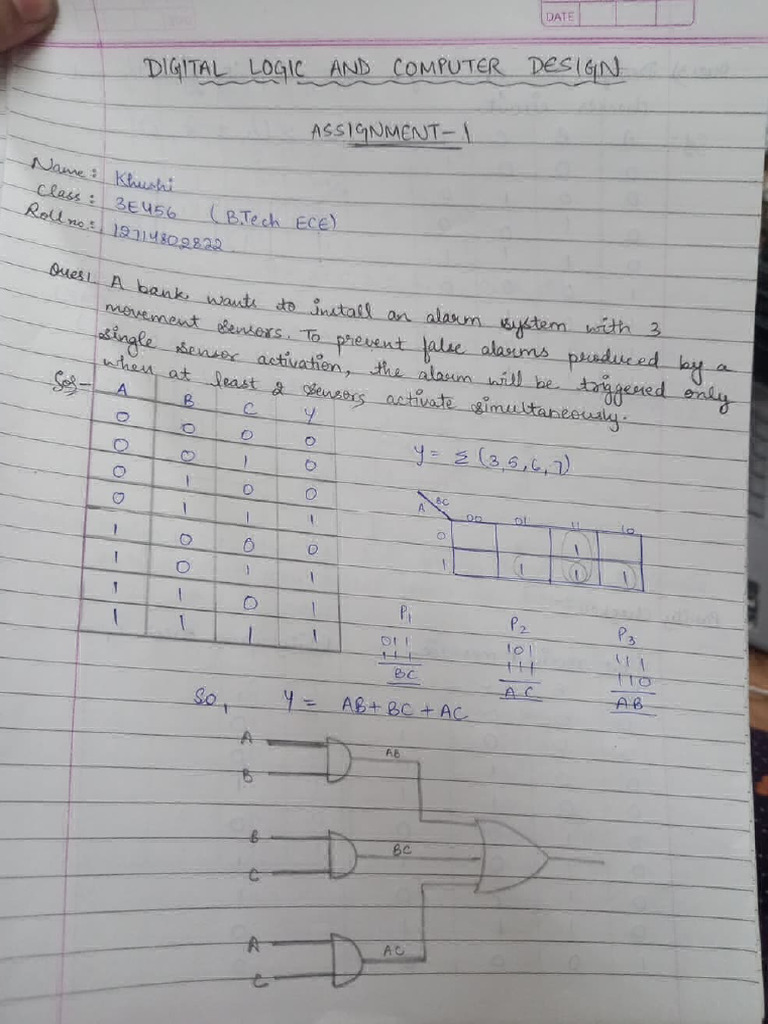 DATE
DIGITAL LOGIC AND COMPUTER DESIGN
ASSIGNMENT-1
Name: Khushi
Class: 3E456 (B.Tech ECE)
Roll no: 12714802822
Ques1. A bank wants to install an alarm system with 3
movement sensors. To prevent false alarms produced by a
single sensor activation, the alarm will be triggered only
when at least 2 sensors activate simultaneously.
Sol-
A B C Y
0 0 0 0
0 0 1 0
0 1 0 0
0 1 1 1
1 0 0 0
1 0 1 1
1 1 0 1
1 1 1 1
Y = Σ (3,5,6,7)
A BC 00 01 11 10
0 1
1 1 1 1
P1 P2 P3
011 101 111
111 111 110
BC AC AB
So, Y = AB + BC + AC
A
AB
B
B
BC
C
A
AC
C